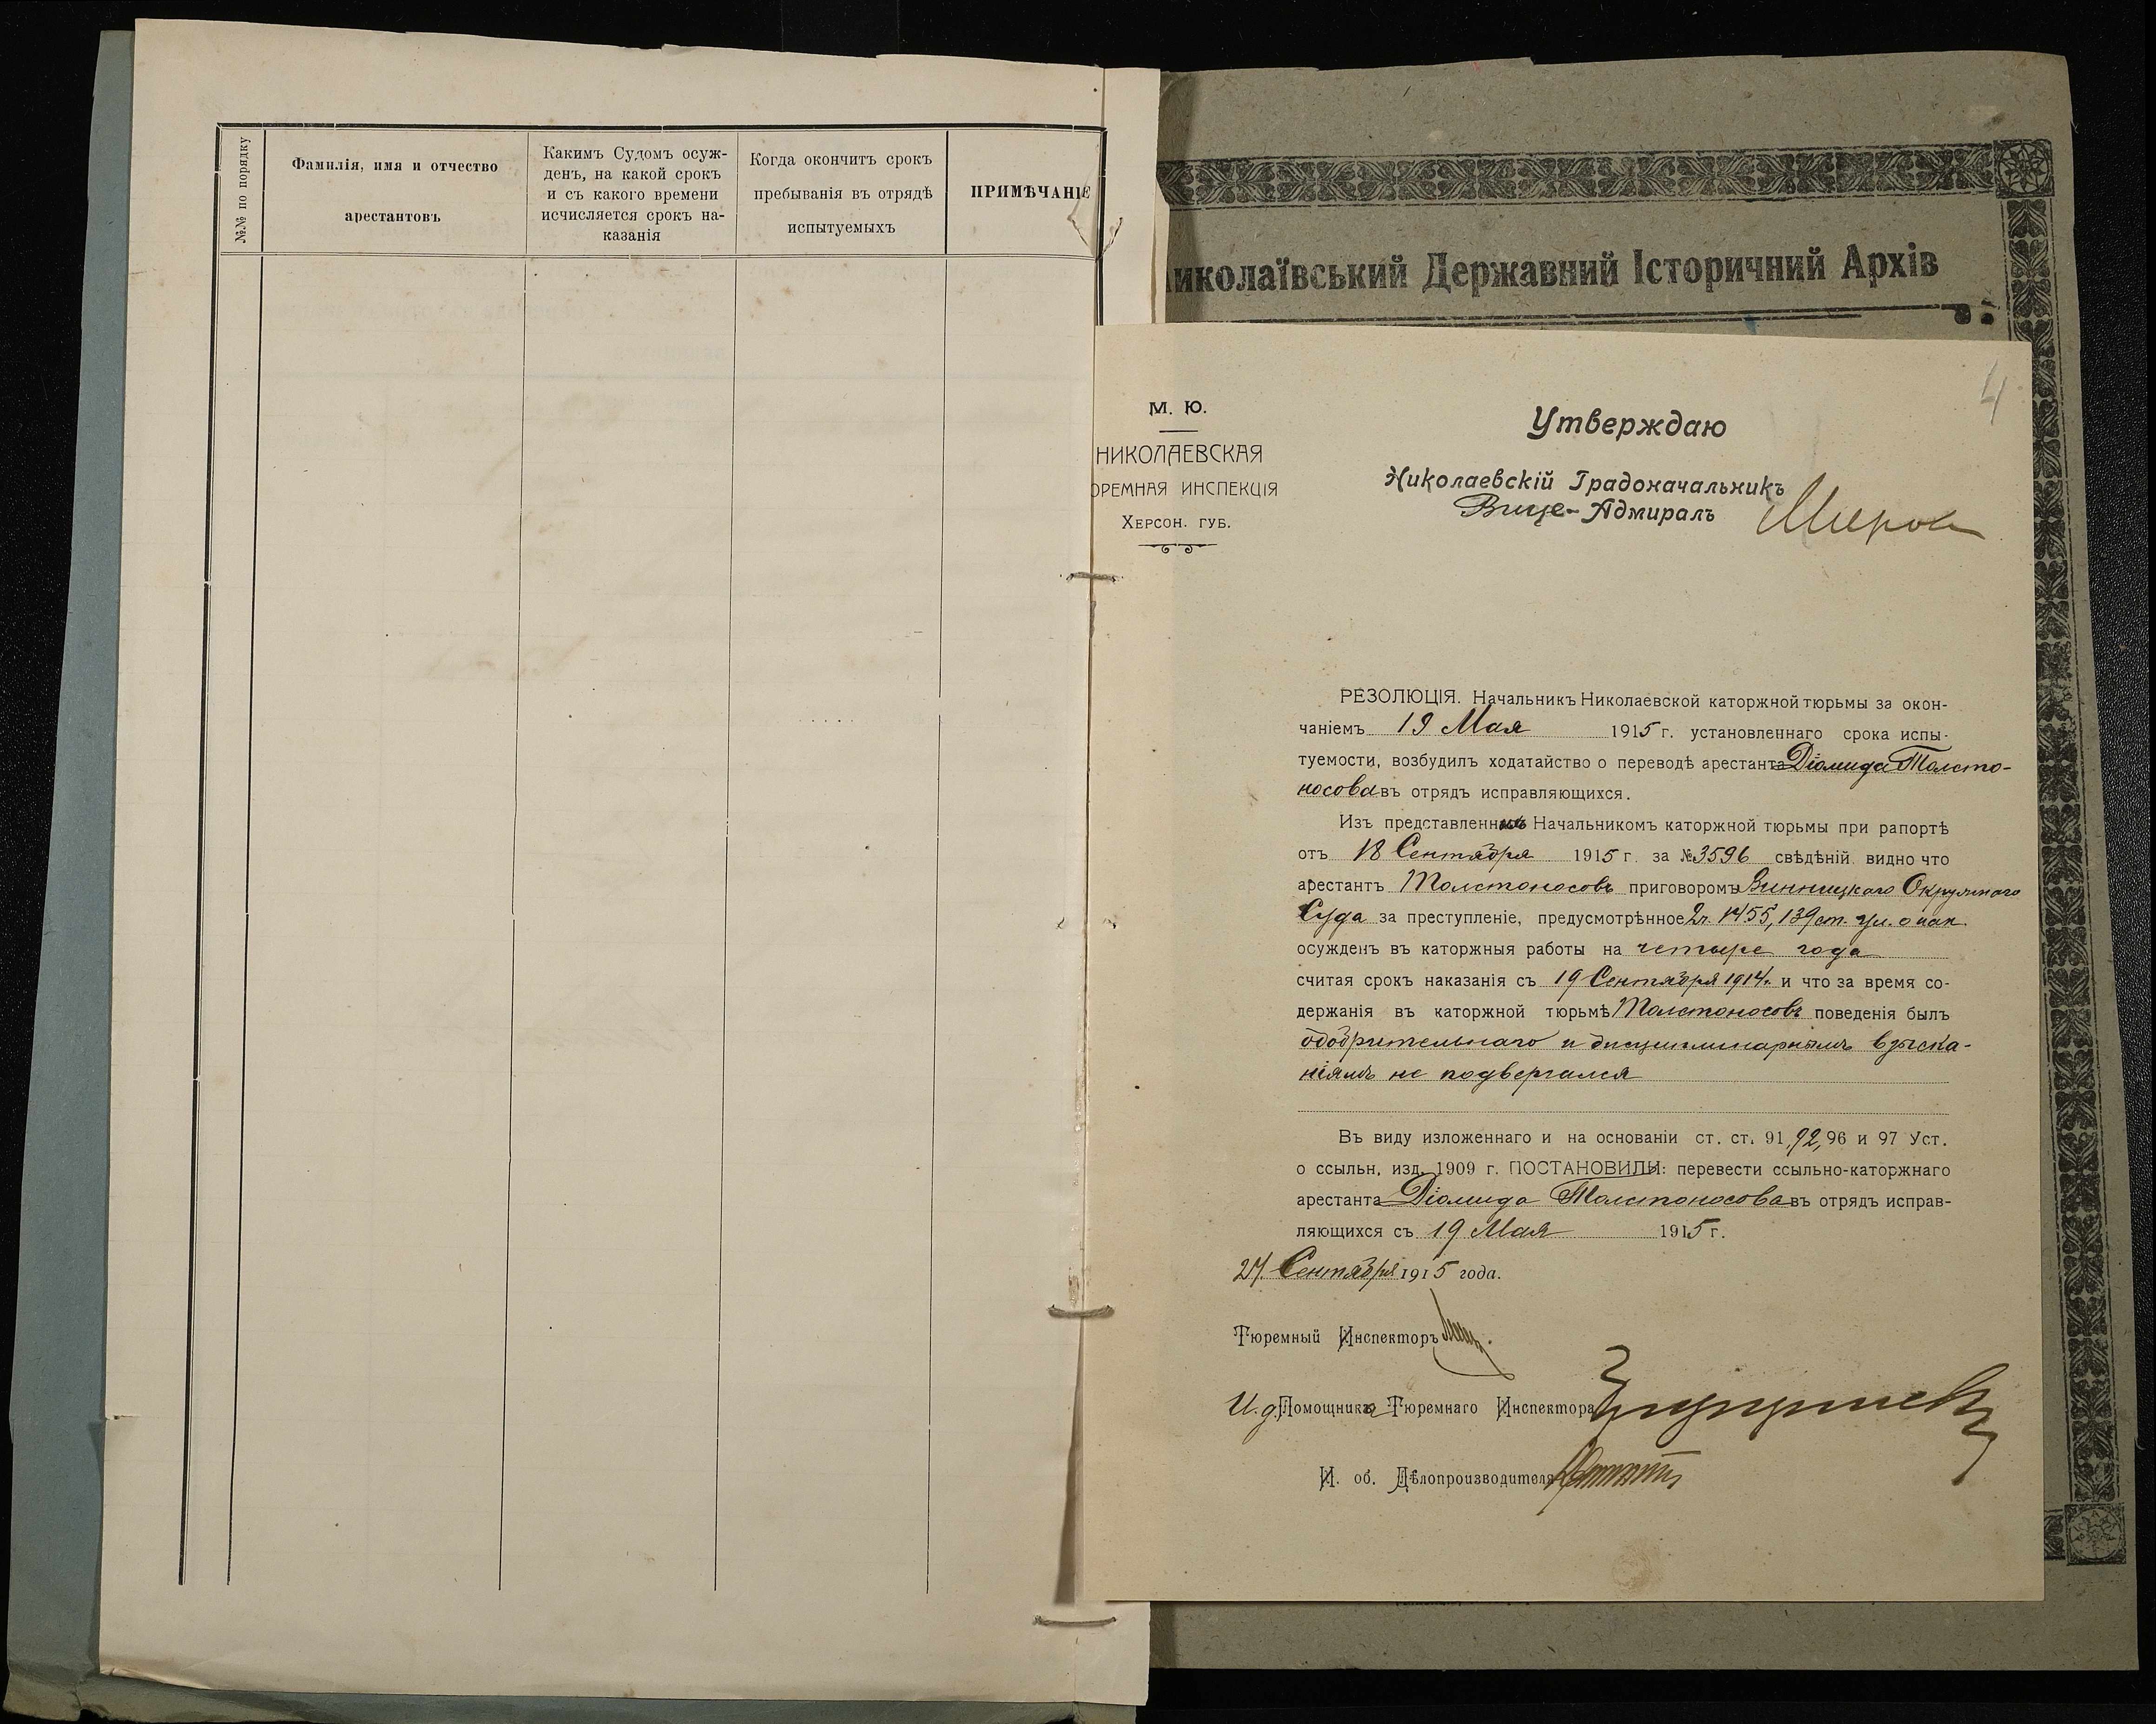 №№ по порядку
Фамилія, имя и отчество
арестантовъ
Какимъ Судомъ осуж-
денъ, на какой срокъ
и съ какого времени
исчисляется срокъ на-
казанія
Когда окончитъ срокъ
пребыванія въ отрядѣ
испытуемыхъ
ПРИМѢЧАНІЕ
иколаївський Державний Історичний Архів
4
М. Ю.
НИКОЛАЕВСКАЯ
ЮРЕМНАЯ ИНСПЕКЦІЯ
Херсон. губ.
Утверждаю
Николаевскій Градоначальникъ
Вице-Адмиралъ
РЕЗОЛЮЦІЯ. Начальникъ Николаевской каторжной тюрьмы за окон-
чаніемъ 19 Мая 1915 г. установленнаго срока испы-
туемости, возбудилъ ходатайство о переводѣ арестанта Діомида Толсто-
носова въ отрядъ исправляющихся.
Изъ представленныхъ Начальникомъ каторжной тюрьмы при рапортѣ
отъ 18 Сентября 1915 г. за № 3596 свѣдѣній видно что
арестантъ Толстоносовъ приговоромъ Винницкаго Окружнаго
Суда за преступленіе, предусмотрѣнное 2 ч. 1455, 139 ст. Ул. о нак.
осужденъ въ каторжныя работы на четыре года
считая срокъ наказанія съ 19 Сентября 1914 г. и что за время со-
держанія въ каторжной тюрьмѣ Толстоносовъ поведенія былъ
одобрительнаго и дисциплинарнымъ взыска-
ніямъ не подвергался
Въ виду изложеннаго и на основаніи ст. ст. 91, 92, 96 и 97 Уст.
о ссыльн, изд. 1909 г. ПОСТАНОВИЛИ: перевести ссыльно-каторжнаго
арестанта Діомида Толстоносова въ отрядъ исправ-
ляющихся съ 19 Мая 1915 г.
24 Сентября 1915 года.
Тюремный Инспекторъ
И. д. Помощника Тюремнаго Инспектора
И. об. Дѣлопроизводителя